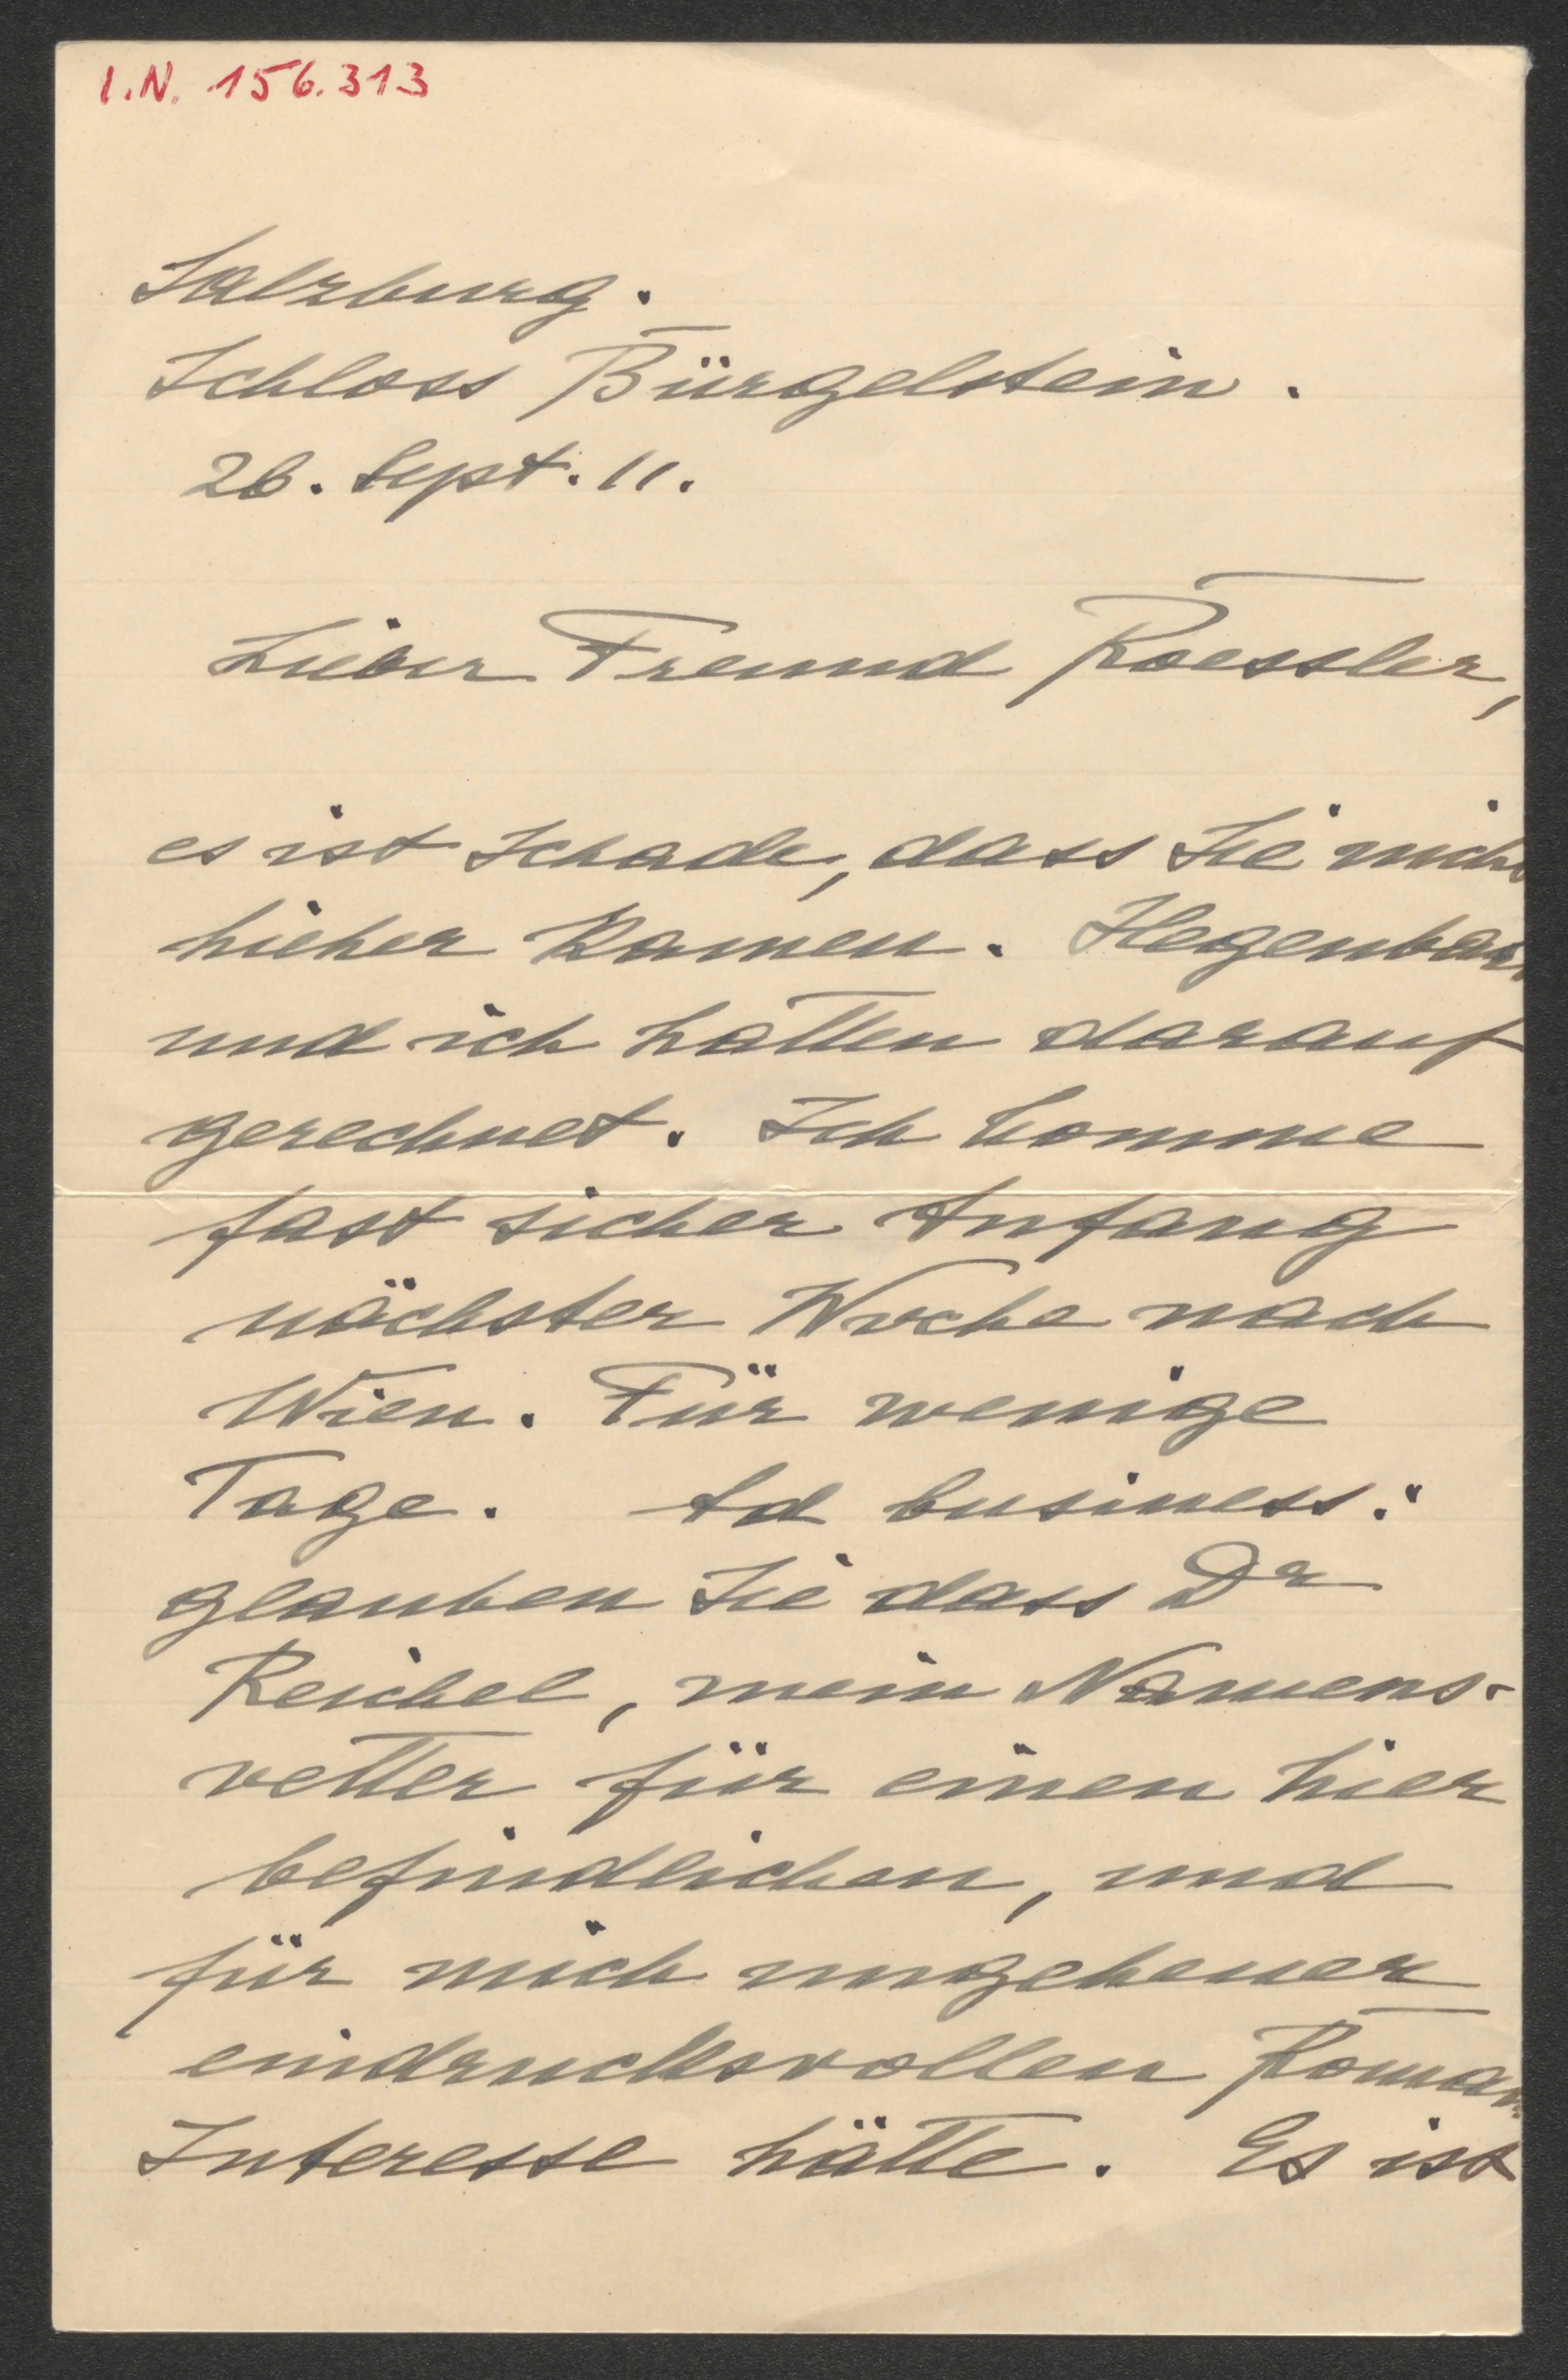 I.N. 156.313
Salzburg.
Schloss Bürgelstein.
26. Sept. 11.
Lieber Freund Roessler,
es ist Schade, dass Sie nicht
hieher kamen. Hegenbart
und ich hatten darauf
gerechnet. Ich komme
fast sicher Anfang
nächster Woche nach
Wien. Für wenige
Tage. Ad business:
glauben Sie dass Dr
Reichel, mein Namens-
vetter für einen hier
befindlichen, und
für mich ungeheuer
eindrucksvollen Romako
Interesse hätte. Es ist